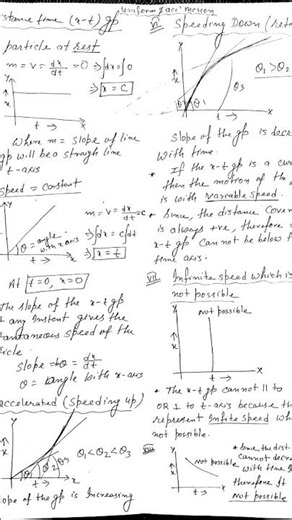 Uniform acc^n motion
stance time (x-t) gp
particle at rest
m = v = dx/dt = 0 ⇒ ∫dx = ∫0
⇒ x = C
x
t →
Where m = slope of line
gp will be a straigh line
t-axis
speed = constant
m = v = dx/dt = c
⇒ ∫dx = c∫dt
⇒ x = t
θ = angle
with x axis
t →
At t=0, x=0
The slope of the x-t gp
any instant gives the
antaneous speed of the
icle.
slope = tanθ = dx/dt
θ = angle with x-axis
accelerated (Speeding up)
θ1 < θ2 < θ3
t →
ope of the gp is Increasing
VI Speeding Down (reta
Y
θ1 > θ2
θ3
θ1
X
t →
Slope of the gp is decre
with time.
* If the x-t gp is a cu
then the motion of the
is with Variable speed.
* Since, the distance Cover
is always +ve, therefore
x-t gp Cannot be below t
time axis.
VII Infinite speed which is
not possible
not possible
x
t →
* The x-t gp cannot ll to
OR ⊥ to t-axis because th
represent Infinite speed wh
not possible.
VIII
* Since the dist
cannot decre
with time
therefore it
not possible
Not
possible
x
t →